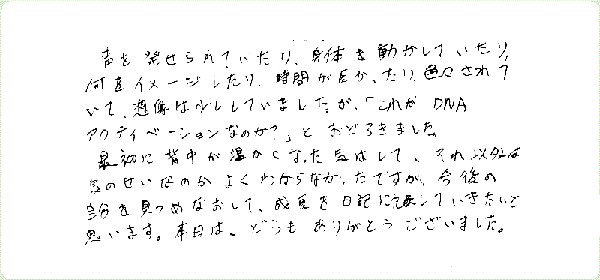 声を発せられていたり、身体を動かしていたり、
何をイメージしたり、時間が長かったり、色々されて
いて、想像は少ししていましたが、「これが DNA
アクティベーションなのか?」と おどろきました
最初に 背中が温かくなった気はして、それ以外は
気のせいなのか よくわからなかったですが、今後の
自分を見つめなおして、成長を日記に記していきたいと
思います。本日は、どうも ありがとうございました。